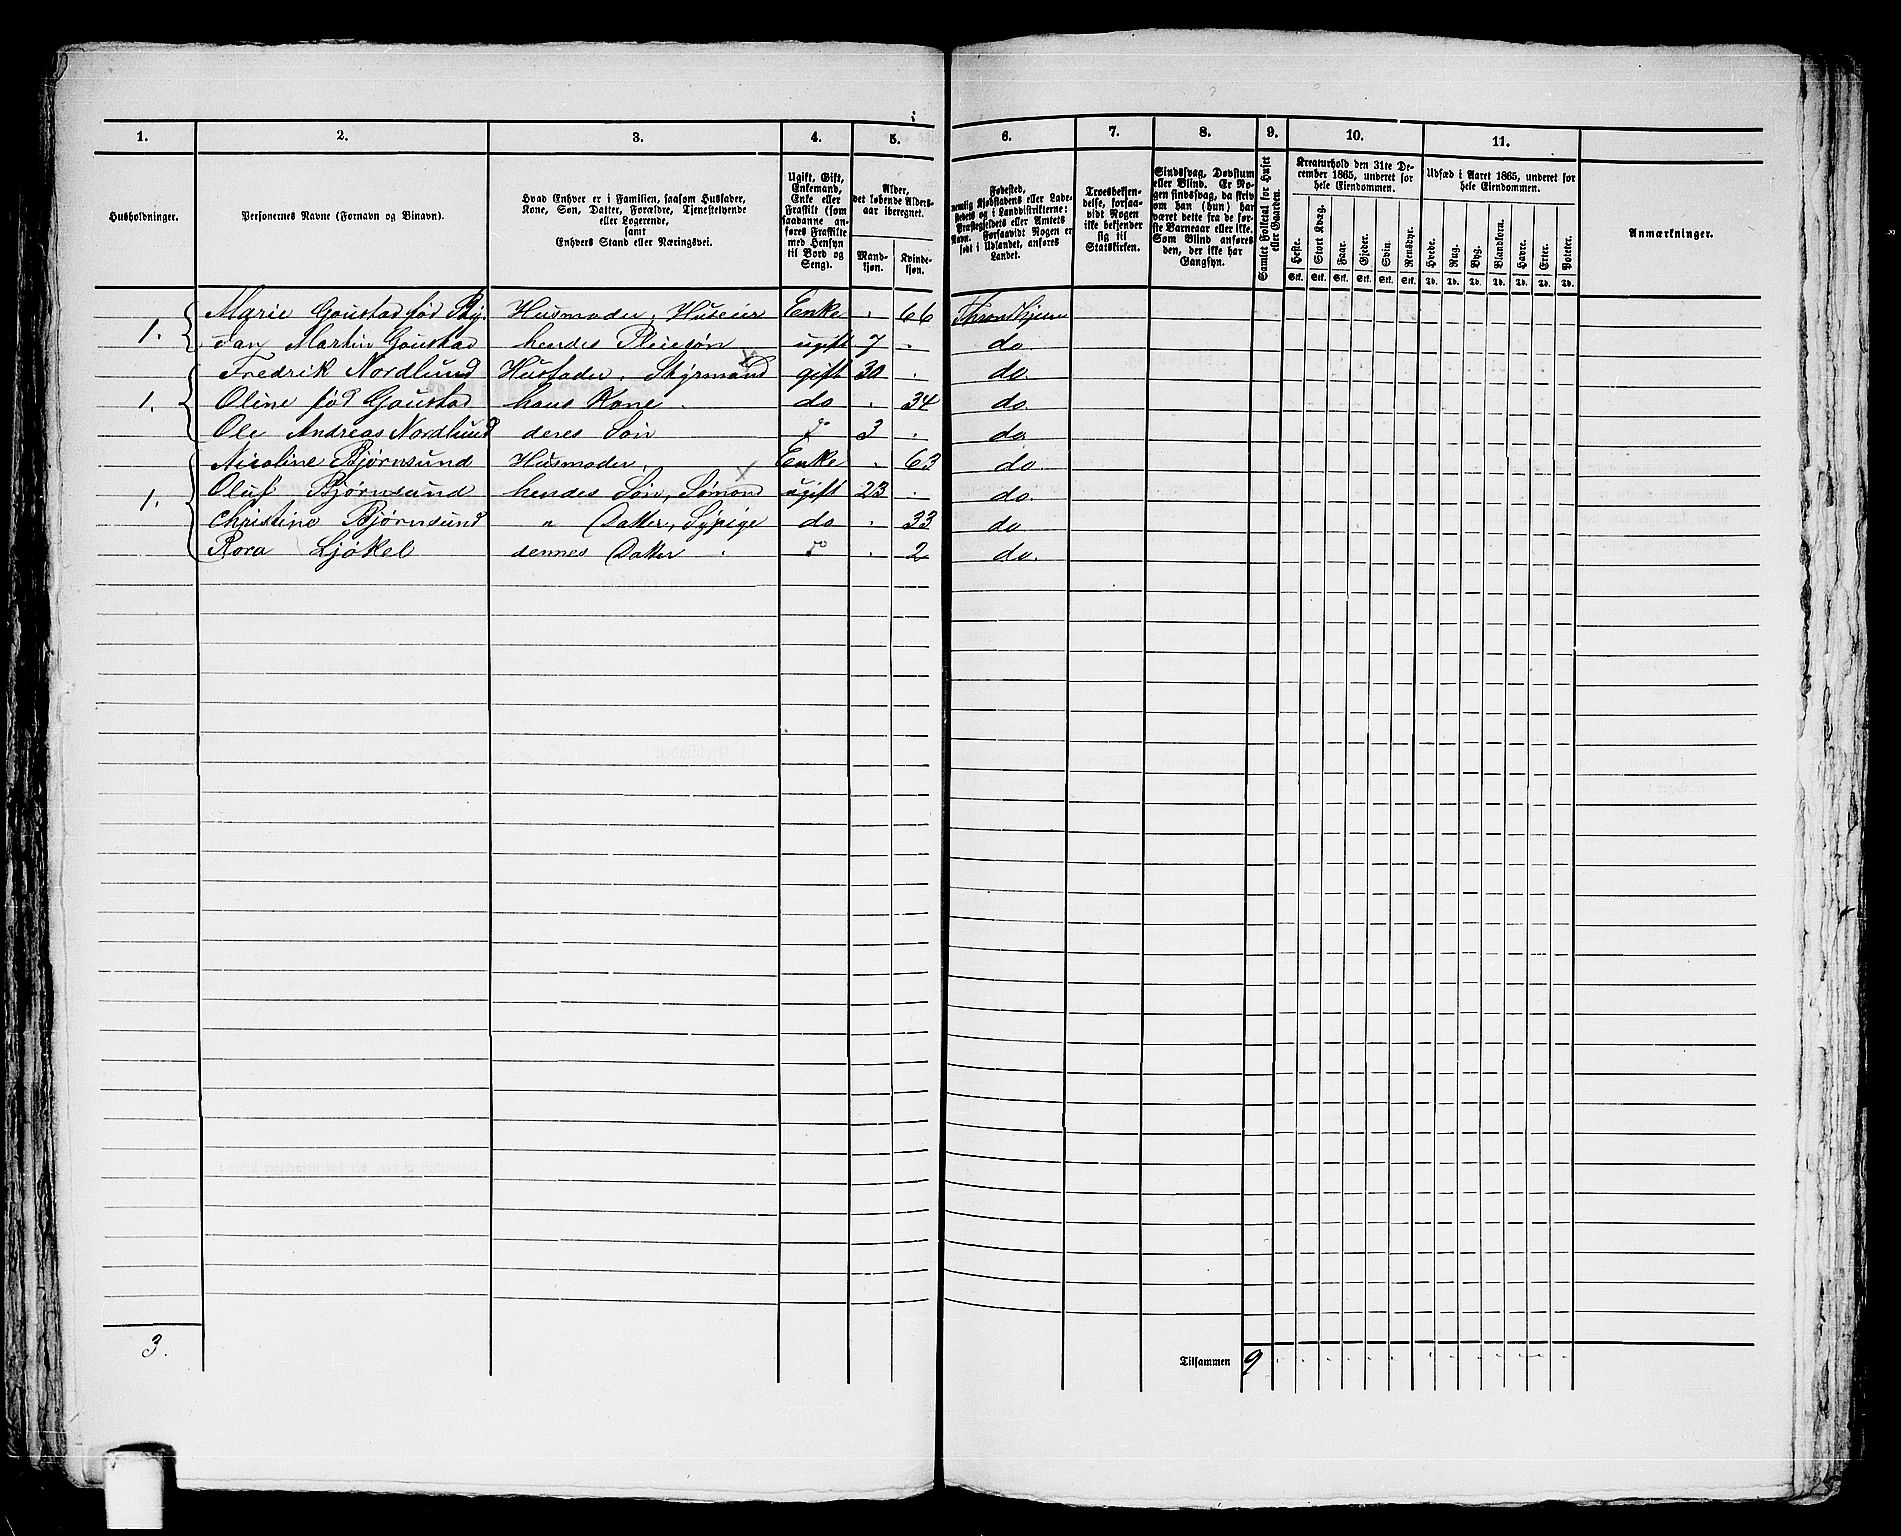 1. 2. 3. 4. 5. 6. 7. 8. 9. 10. 11.
Husholdninger.
Personernes Navne (Fornavn og Binavn).
Hvad Enhver er i Familien, saasom Husfader,
Kone, Søn, Datter, Forældre, Tjenestetyende
eller Logerende,
samt
Enhvers Stand eller Næringsvei.
Ugift, Gift,
Enkemand,
Enke eller
Fraskilt (som
saadanne an-
føres Fraskilte
med Hensyn
til Bord og
Seng).
Alder,
det løbende Alders-
aar iberegnet.
Mand-
kjøn.
Kvinde-
kjøn.
Fødested,
nemlig Kjøbstadens eller Lade-
stedets og i Landdistrikterne:
Præstegjeldets eller Amtets
Navn. Forsaavidt Nogen er
født i Udlandet, anføres
Landet.
Troesbekjen-
delse, forsaa-
vidt Nogen
ikke bekjender
sig til
Statskirken.
Sindssvag, Døvstum
eller Blind. Er No-
gen sindssvag, da skriv
om han (hun) har
været dette fra de før-
ste Barneaar eller ikke.
Som Blind anføres
den, der ikke har
Gangsyn.
Samlet Folketal for Huset
eller Gaarden.
Kreaturhold den 31te De-
cember 1865, underet for
hele Eiendommen.
Heste. Stort Kvæg. Faar. Gjeder. Svin. Rensdyr.
Stk. Stk. Stk. Stk. Stk. Stk.
Udsæd i Aaret 1865, underet for
hele Eiendommen.
Hvede. Rug. Byg. Blandkorn. Havre. Erter. Poteter.
Td. Td. Td. Td. Td. Td. Td.
Anmærkninger.
Marie Goustad fød Husmoder, Huseier Enke . 66 Throndhjem
1. Jan Martin Goustad hendes Pleiesøn ugift 7 . do
Fredrik Nordlund Husfader, Styrmand gift 30 . do.
1. Oline fød Goustad hans Kone do . 34 do.
Ole Andreas Nordlund deres Søn 3 . do
Nicoline Bjørnsund Husmoder, Enke . 63 do.
1. Oluf Bjørnsund hendes Søn, Sømand ugift 23 . do.
Christine Bjørnsund " Datter, Sypige do . 33 do
Rora Ljøkel dennes Datter . . 2 do.
3.
Tilsammen 9